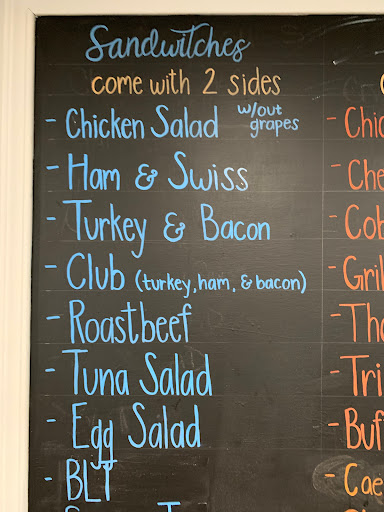 Sandwitches
come with 2 sides
- Chicken Salad w/out grapes
- Ham & Swiss
- Turkey & Bacon
- Club (turkey, ham, & bacon)
- Roastbeef
- Tuna Salad
- Egg Salad
- BLT
- Chi
- Che
- Cob
- Gril
- Tha
- Tri
- Buf
- Cae